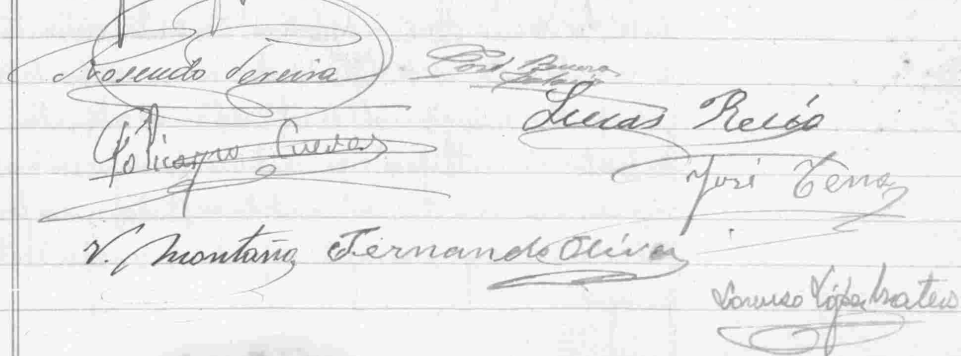 Rosendo Pereira
José
Lucas Recio
Policarpo Cuevas
José Tena
V. Montaña Fernando Oliva
Lorenzo López Mateos